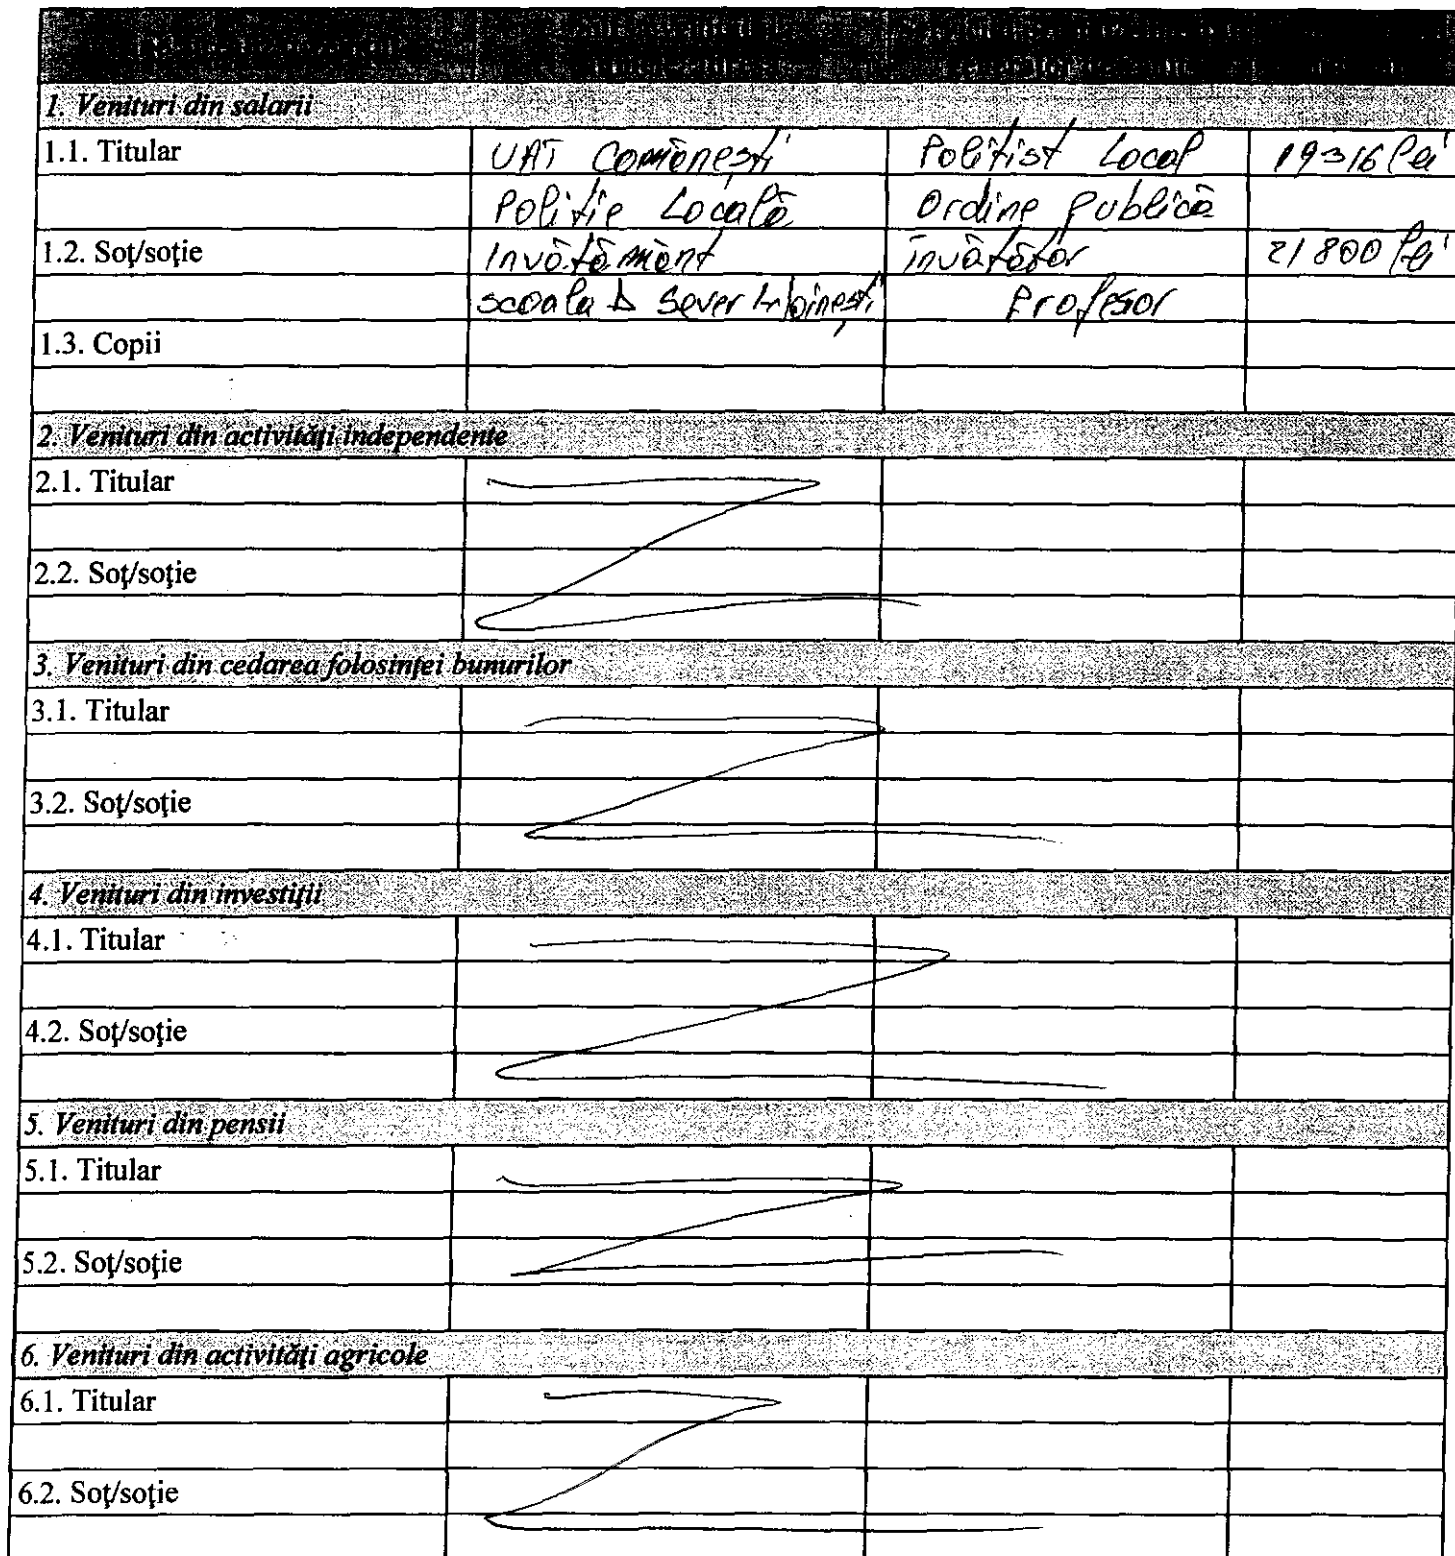 1. Venituri din salarii
1.1. Titular UAT Comănești Polițist Local 19316 lei
Poliție Locală Ordine publică
1.2. Soţ/soţie Invătămănt învătător 21800 lei
scoala D Sever Profesor
1.3. Copii
2. Venituri din activităţi independente
2.1. Titular
2.2. Soţ/soţie
3. Venituri din cedarea folosinţei bunurilor
3.1. Titular
3.2. Soţ/soţie
4. Venituri din investiţii
4.1. Titular
4.2. Soţ/soţie
5. Venituri din pensii
5.1. Titular
5.2. Soţ/soţie
6. Venituri din activităţi agricole
6.1. Titular
6.2. Soţ/soţie